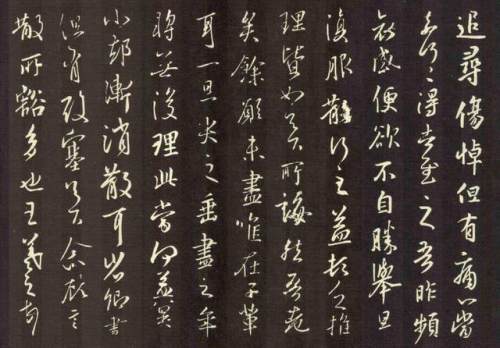 追尋傷悼但有痛心當
奈何〻得告慰之吾昨頻
哀感便欲不自勝舉旦
復服散行之益頓乏推
理皆如足下所誨然吾老
矣餘願未盡唯在子輩
耳一旦哭之垂盡之年
轉無復理此當何益冀
小却漸消散耳省卿書
但有酸塞足下念故言
散所豁多也王羲之頓首